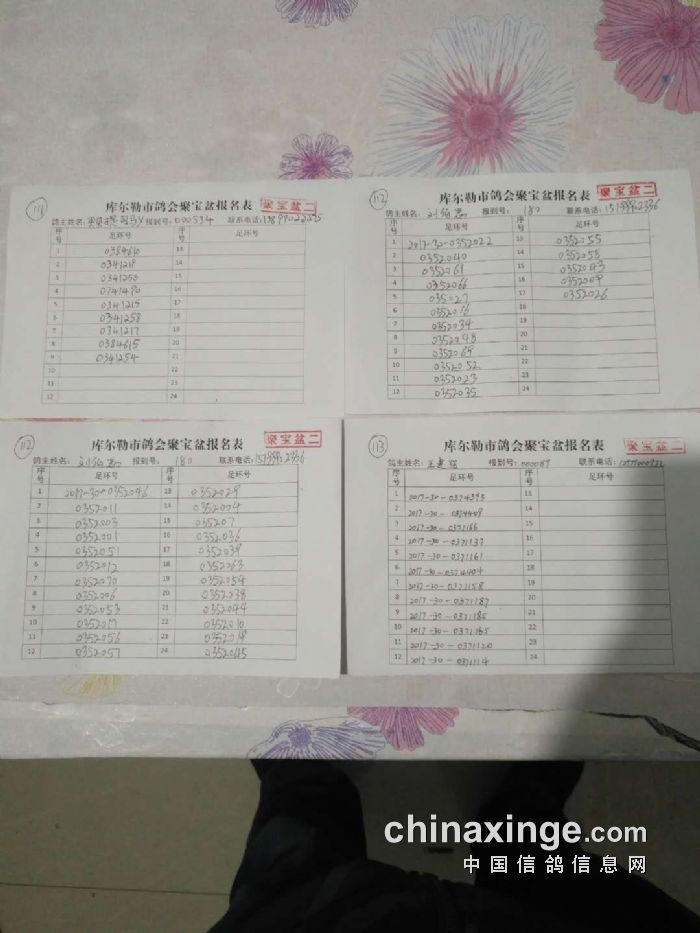 111
库尔勒市鸽会聚宝盆报名表
聚宝盆二
鸽主姓名: 报到号: 000534 联系电话:
序号 足环号 序号 足环号
1 0384610 13
2 0341219 14
3 0341250 15
4 16
5 0341215 17
6 0341258 18
7 0341217 19
8 0384615 20
9 0341254 21
10 22
11 23
12 24
112
库尔勒市鸽会聚宝盆报名表
聚宝盆二
鸽主姓名: 刘 报到号: 180 联系电话:
序号 足环号 序号 足环号
1 2017-30-0352022 13 0352055
2 0352040 14 0352058
3 0352061 15 0352043
4 0352066 16
5 035027 17 0352026
6 0352016 18
7 0352034 19
8 0352048 20
9 0352069 21
10 0352052 22
11 0352023 23
12 0352035 24
112
库尔勒市鸽会聚宝盆报名表
聚宝盆二
鸽主姓名: 刘 报到号: 180 联系电话:
序号 足环号 序号 足环号
1 2017-30-0352046 13 0352029
2 0352011 14 0352004
3 0352003 15 035207
4 0352001 16 0352036
5 0352051 17 0352039
6 0352012 18 0352063
7 0352070 19 0352054
8 035206 20 0352038
9 0352053 21 0352044
10 0352017 22 0352010
11 0352056 23 0352019
12 0352057 24 0352045
113
库尔勒市鸽会聚宝盆报名表
聚宝盆二
鸽主姓名: 王建 报到号: 000089 联系电话:
序号 足环号 序号 足环号
1 2017-30-0374395 13
2 2017-30-0374409 14
3 2017-30-0371166 15
4 2017-30-0371137 16
5 2017-30-0371161 17
6 2017-30-0374404 18
7 2017-30-0371158 19
8 2017-30-0371187 20
9 2017-30-0371185 21
10 2017-30-0371165 22
11 2017-30-0371120 23
12 2017-30-0371114 24
chinaxinge.com
中国信鸽信息网